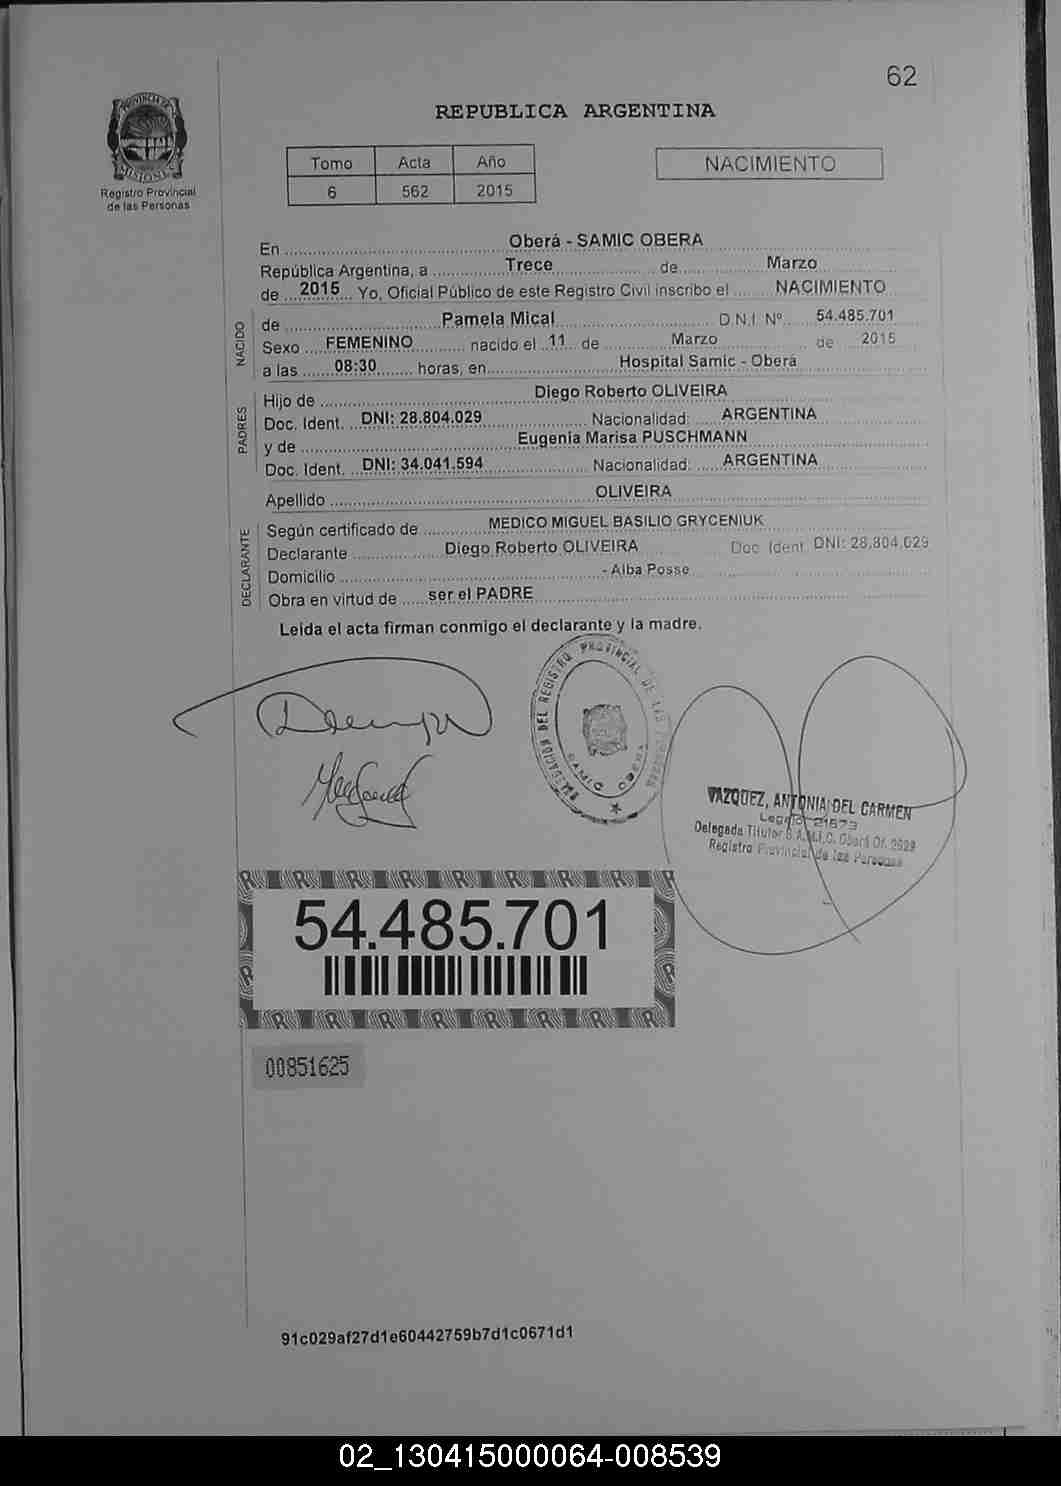 62
REPUBLICA ARGENTINA
PROVINCIA DE
MISIONES
Registro Provincial
de las Personas
Tomo Acta Año
6 562 2015
NACIMIENTO
En Oberá - SAMIC OBERA
República Argentina, a Trece de Marzo
de 2015 Yo, Oficial Público de este Registro Civil inscribo el NACIMIENTO
NACIDO
de Pamela Mical D.N.I. Nº 54.485.701
Sexo FEMENINO nacido el 11 de Marzo de 2015
a las 08:30 horas, en Hospital Samic - Oberá
PADRES
Hijo de Diego Roberto OLIVEIRA
Doc. Ident. DNI: 28.804.029 Nacionalidad: ARGENTINA
y de Eugenia Marisa PUSCHMANN
Doc. Ident. DNI: 34.041.594 Nacionalidad: ARGENTINA
Apellido OLIVEIRA
DECLARANTE
Según certificado de MEDICO MIGUEL BASILIO GRYCENIUK
Declarante Diego Roberto OLIVEIRA Doc. Ident. DNI: 28.804.029
Domicilio - Alba Posse
Obra en virtud de ser el PADRE
Leida el acta firman conmigo el declarante y la madre.
DELEGACION DEL REGISTRO PROVINCIAL DE LAS PERSONAS
SAMIC OBERA
VAZQUEZ, ANTONIA DEL CARMEN
Legajo 21673
Delegada Titular S.A.M.I.C. Oberá Of. 2929
Registro Provincial de las Personas
54.485.701
00851625
91c029af27d1e60442759b7d1c0671d1
02_130415000064-008539